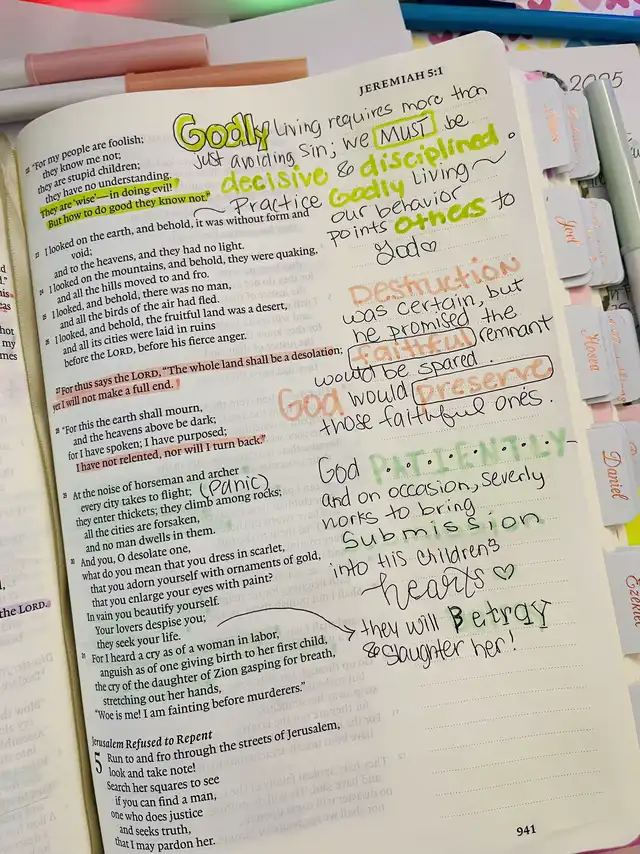 JEREMIAH 5:1
22 "For my people are foolish;
they know me not;
they are stupid children;
they have no understanding.
They are 'wise'—in doing evil!
But how to do good they know not."
23 I looked on the earth, and behold, it was without form and
void;
and to the heavens, and they had no light.
24 I looked on the mountains, and behold, they were quaking,
and all the hills moved to and fro.
25 I looked, and behold, there was no man,
and all the birds of the air had fled.
26 I looked, and behold, the fruitful land was a desert,
and all its cities were laid in ruins
before the LORD, before his fierce anger.
27 For thus says the LORD, "The whole land shall be a desolation;
yet I will not make a full end.
28 "For this the earth shall mourn,
and the heavens above be dark;
for I have spoken; I have purposed;
I have not relented, nor will I turn back."
29 At the noise of horseman and archer
every city takes to flight; (panic)
they enter thickets; they climb among rocks;
all the cities are forsaken,
and no man dwells in them.
30 And you, O desolate one,
what do you mean that you dress in scarlet,
that you adorn yourself with ornaments of gold,
that you enlarge your eyes with paint?
In vain you beautify yourself.
Your lovers despise you;
they seek your life.
31 For I heard a cry as of a woman in labor,
anguish as of one giving birth to her first child,
the cry of the daughter of Zion gasping for breath,
stretching out her hands,
"Woe is me! I am fainting before murderers."
Jerusalem Refused to Repent
5 Run to and fro through the streets of Jerusalem,
look and take note!
Search her squares to see
if you can find a man,
one who does justice
and seeks truth,
that I may pardon her.
Godly Living requires more than
just avoiding Sin; we MUST be
decisive & disciplined.
Practice Godly Living ~
our behavior
points others to
God ♡
DESTRUCTION
was certain, but
he promised the
faithful remnant
would be spared.
God would preserve
those faithful ones.
God PATIENTLY
and on occasion, severly
works to bring
Submission
into His children's
hearts ♡
they will Betray
& Slaughter her!
941
2025
Joel
Hosea
Daniel
Ezekiel
the LORD.